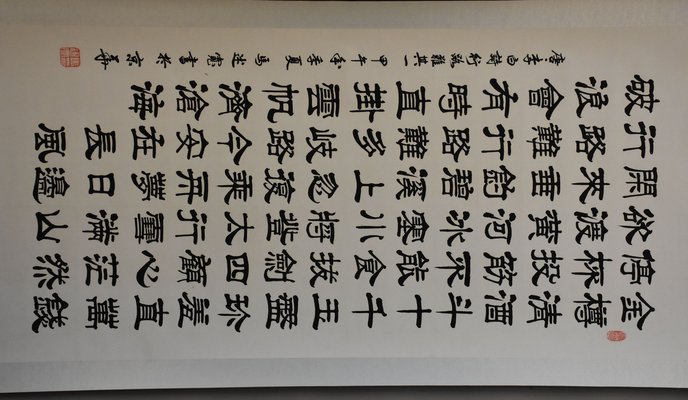 金樽清酒斗十千玉盤珍羞直萬錢
停杯投筯不能食拔劍四顧心茫然
欲渡黃河冰塞川將登太行雪滿山
閑來垂釣碧溪上忽復乘舟夢日邊
行路難行路難多岐路今安在長風
破浪會有時直掛雲帆濟滄海
唐李白詩行路難其一 甲午年季夏馬書於京華